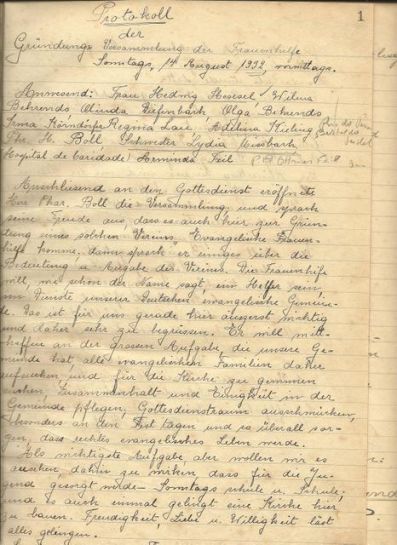 1
Protokoll
der
Gründungs Versammlung der Frauenhilfe
Sonntags, 14 August 1932, vormittags.
Anwesend: Frau Hedwig Wilma
Behrends Olinda Tiefenbach Olga Behrends
Irma Körndörfer Regina Laui, Adelina
Phr. H. Boll, Schwester Lydia
Hospital de Caridade) Herminda Feil
Anschliessend an den Gottesdienst eröffnete
Herr Pfar. Boll die Versammlung und sprach
seine Freude aus, dass es auch hier zur Grün-
dung eines solchen Vereins, Evangelische Frauen-
hilfe komme, dann sprach er einiges über die
Bedeutung u. Aufgabe des Vereins. Die Frauenhilfe
will, wie schon der Name sagt, ein Helfer sein
im Dienste unserer deutschen evangelische Gemein-
de. Das ist für uns gerade hier äusserst wichtig
und daher sehr zu begrüssen. Er will mit-
helfen an der grossen Aufgabe, die unsere Ge-
meinde hat, alle evangelischen Familien daher
aufsuchen und für die Kirche zu gewinnen
suchen, Zusammenhalt und Einigkeit in der
Gemeinde pflegen, Gottesdienstraum ausschmücken,
besonders an den Fest tagen und so überall sor-
gen, dass rechtes evangelisches Leben werde.
Als wichtigste Aufgabe aber wollen wir es
ansehen, dahin zu wirken dass für die Ju-
gend gesorgt werde — Sonntags schule u. Schule,
und es auch einmal gelingt eine Kirche hier
zu bauen. Freudigkeit, Liebe u. Willigkeit läst
alles gelingen.